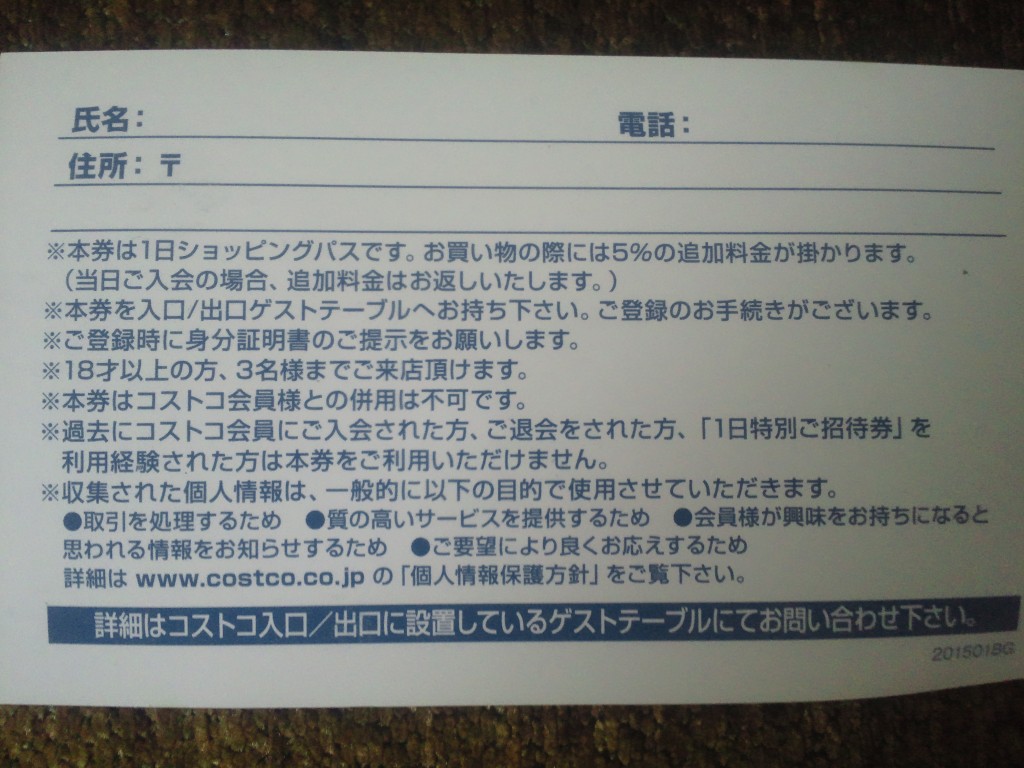 氏名：　電話：
住所：〒
※本券は1日ショッピングパスです。お買い物の際には5%の追加料金が掛かります。
（当日ご入会の場合、追加料金はお返しいたします。）
※本券を入口/出口ゲストテーブルへお持ち下さい。ご登録のお手続きがございます。
※ご登録時に身分証明書のご提示をお願いします。
※18才以上の方、3名様までご来店頂けます。
※本券はコストコ会員様との併用は不可です。
※過去にコストコ会員にご入会された方、ご退会をされた方、「1日特別ご招待券」を
利用経験された方は本券をご利用いただけません。
※収集された個人情報は、一般的に以下の目的で使用させていただきます。
●取引を処理するため　●質の高いサービスを提供するため　●会員様が興味をお持ちになると
思われる情報をお知らせするため　●ご要望により良くお応えするため
詳細は www.costco.co.jp の「個人情報保護方針」をご覧下さい。
詳細はコストコ入口／出口に設置しているゲストテーブルにてお問い合わせ下さい。
201501BG